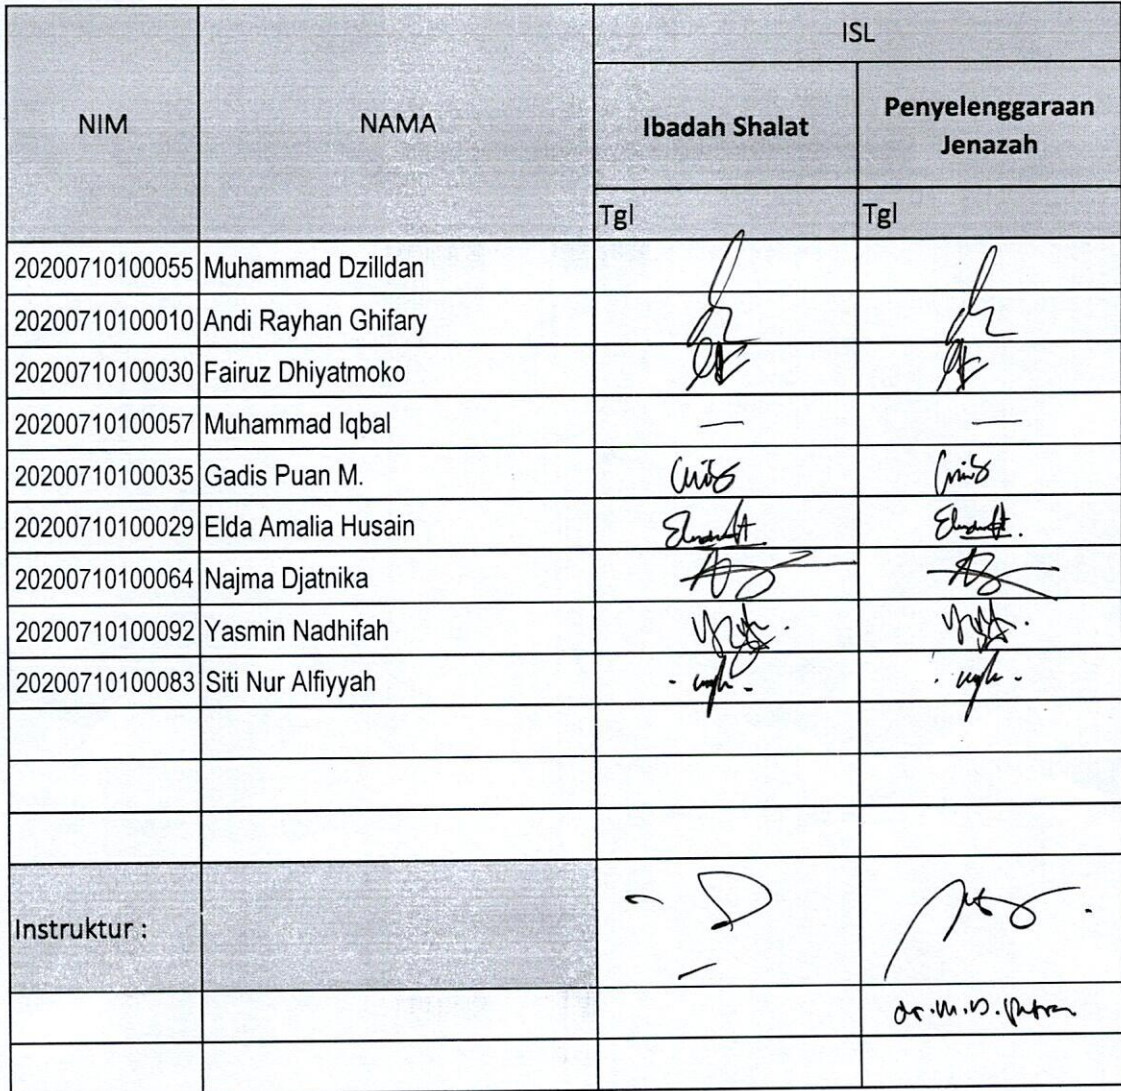 ISL
NIM NAMA Ibadah Shalat Penyelenggaraan
Jenazah
Tgl Tgl
20200710100055 Muhammad Dzilldan
20200710100010 Andi Rayhan Ghifary
20200710100030 Fairuz Dhiyatmoko
20200710100057 Muhammad Iqbal — —
20200710100035 Gadis Puan M.
20200710100029 Elda Amalia Husain
20200710100064 Najma Djatnika
20200710100092 Yasmin Nadhifah
20200710100083 Siti Nur Alfiyyah
Instruktur :
dr. M. D. Putra